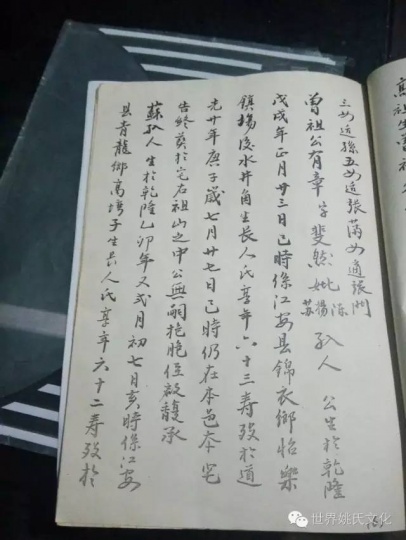 三女适孫五女适張滿女適張門
曾祖公有章字斐然妣陳楊蘇孺人 公生於乾隆
戊戌年正月廿三日已時係江安县錦衣鄉怡樂
鎮楊後水井角生長人氏享年六十三寿殁於道
光廿年庚子歲七月廿七日已時仍在本邑本宅
告終葵於宅右祖山之中公無嗣抱胞侄啟馥承
蘇孺人生於乾隆乙卯年又弍月初七亥時係江安
县青龍鄉高塆子生長人氏享年六十二寿殁於
世界姚氏文化